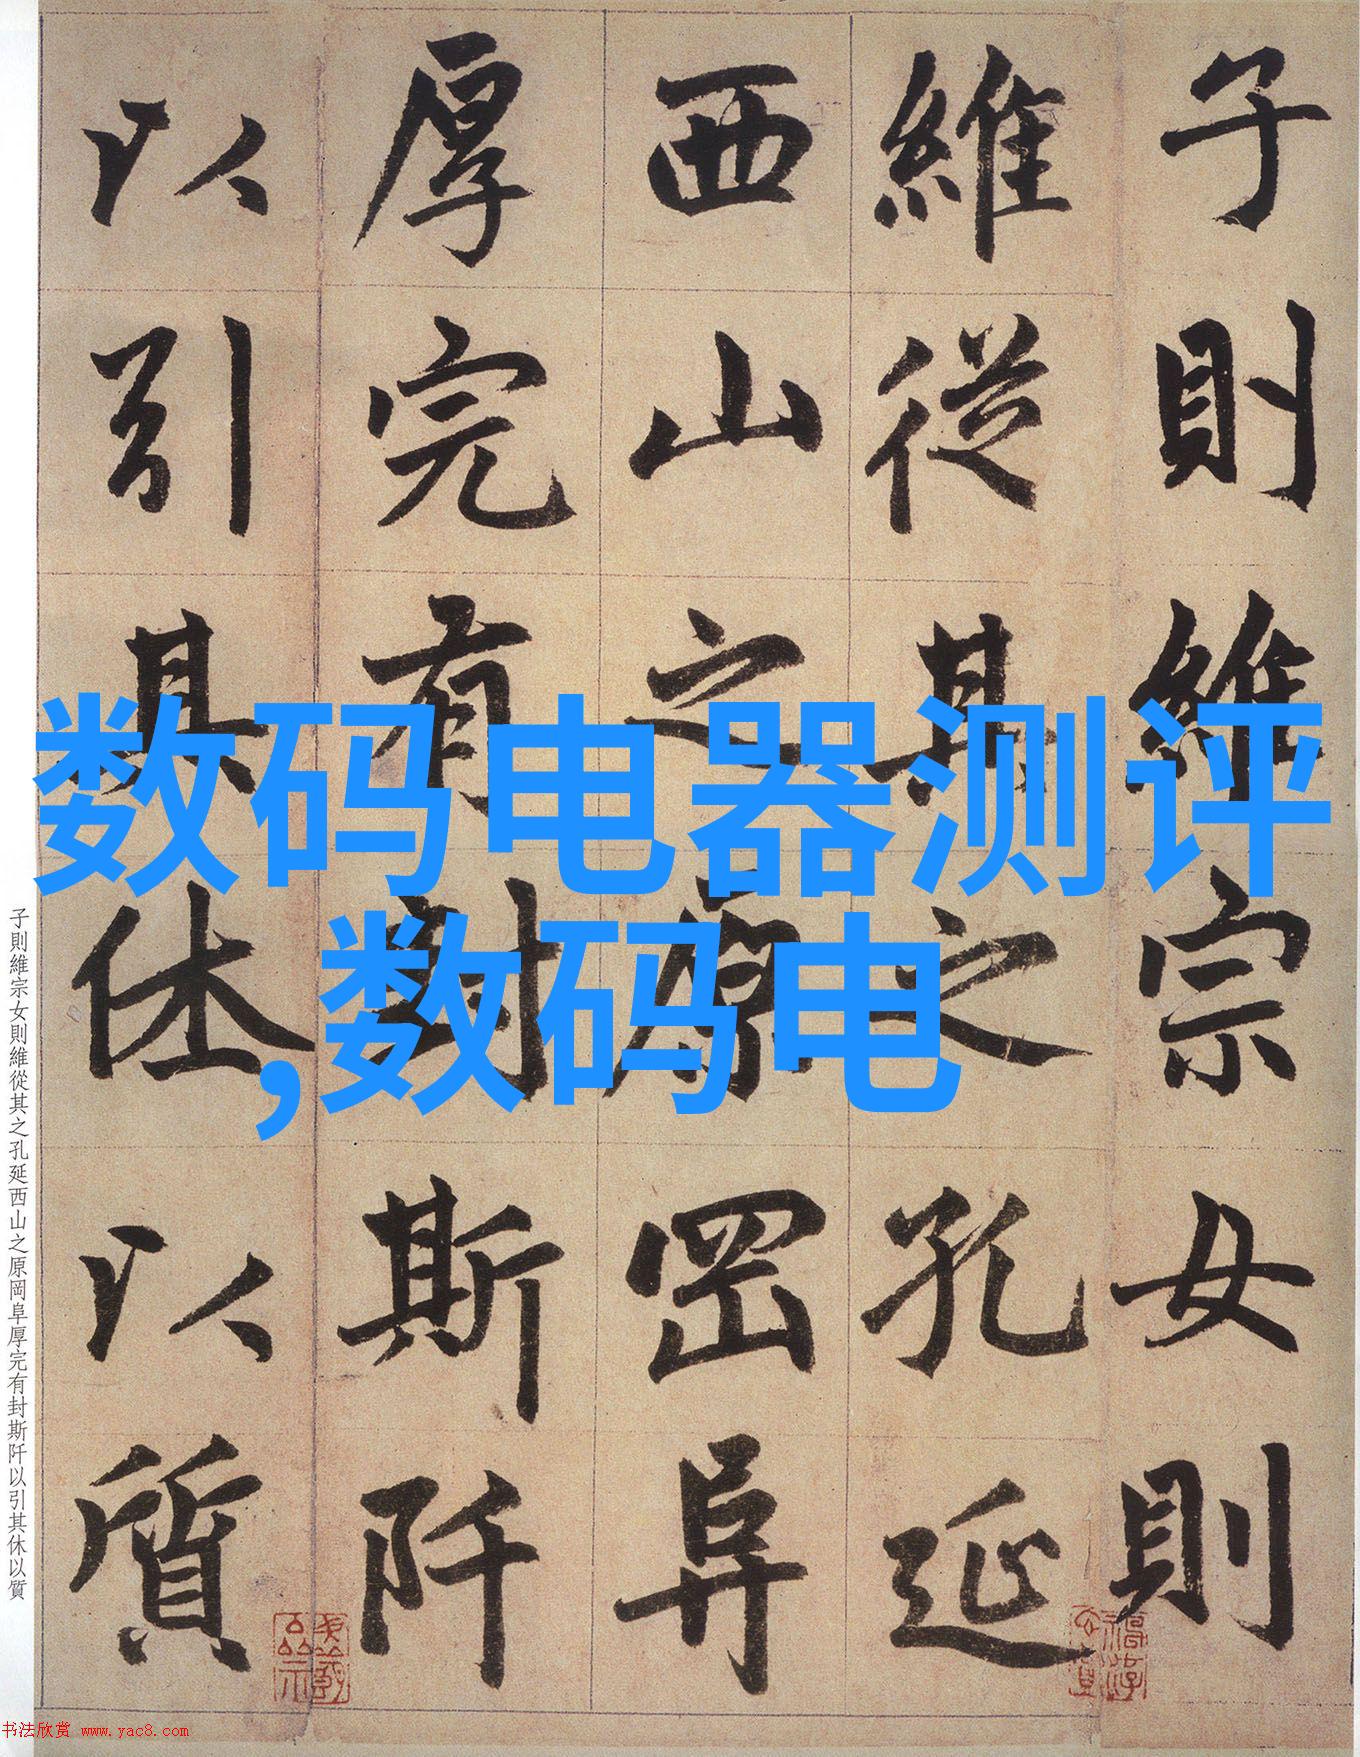 子則維宗女則
維從其之孔延
西山之原罡阜
厚完有封斯阡
以引其休以質
数码电器测评
,数码电
子則維宗女則維從其之孔延西山之原岡阜厚完有封斯阡以引其休以質
书法欣赏 www.yac8.com